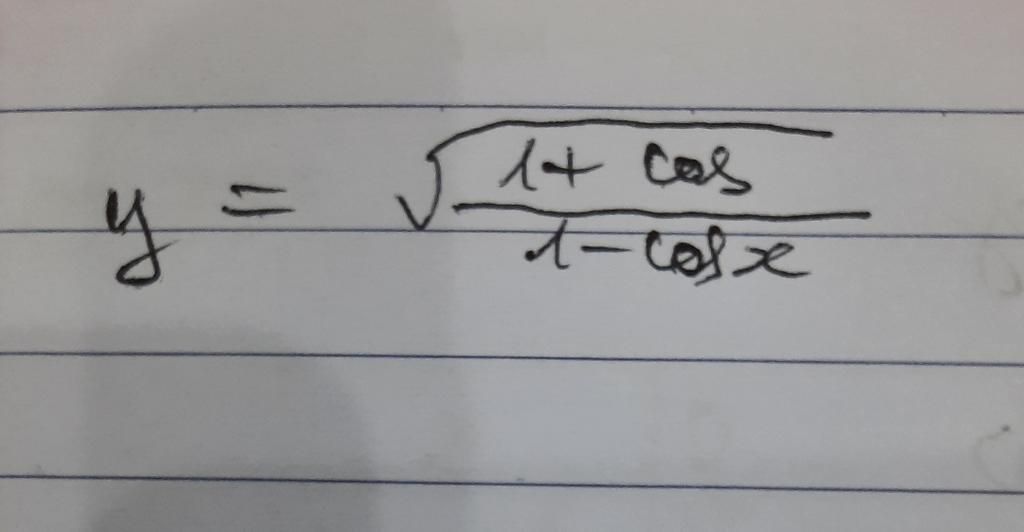 y = √((1 + cos)/(1 - cos x))